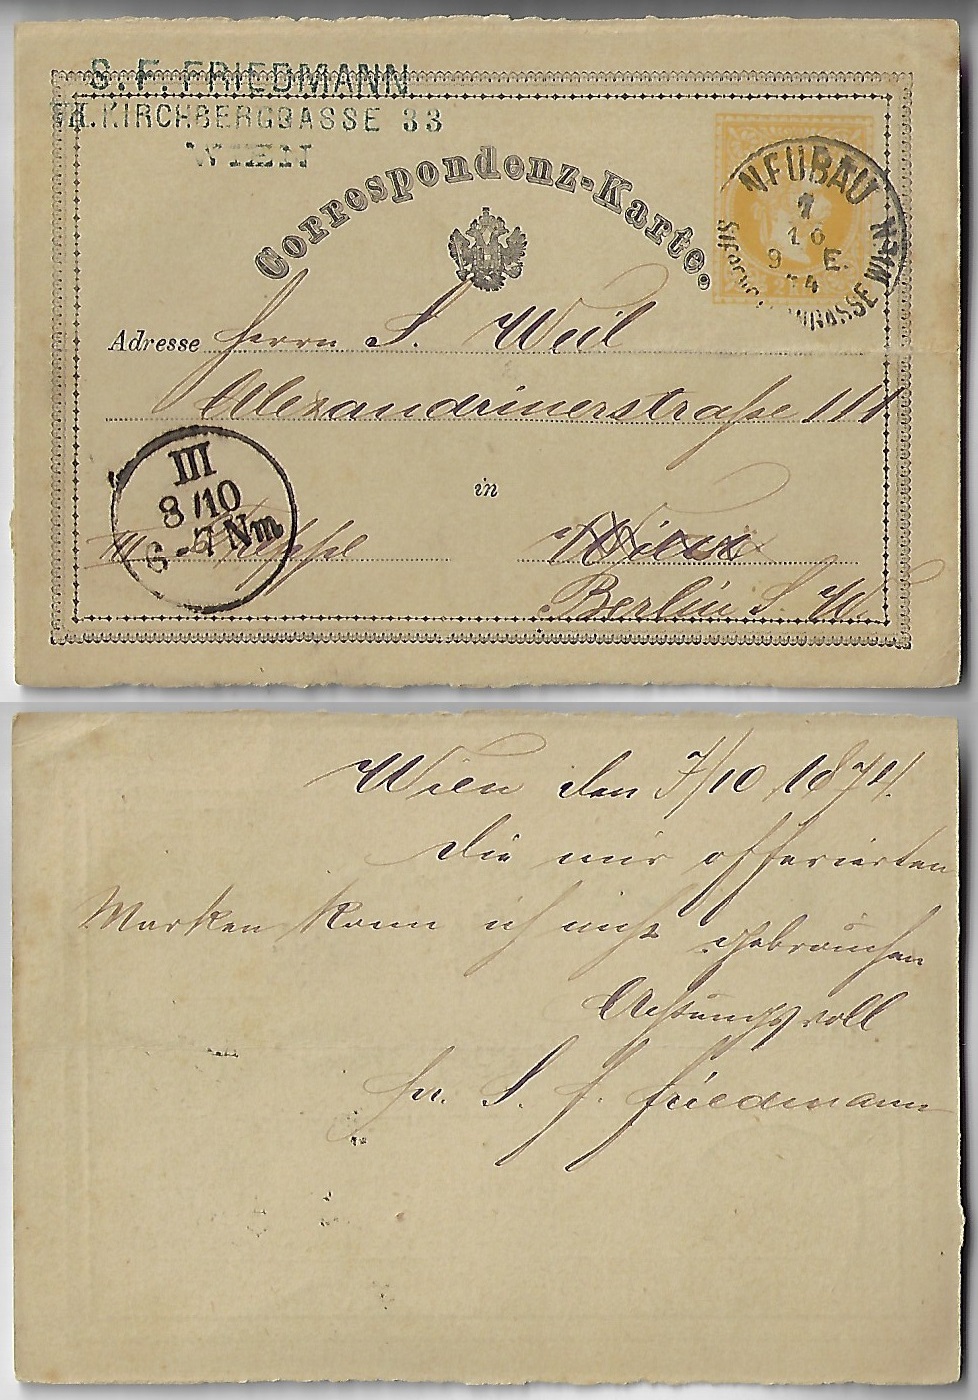 S. F. FRIEDMANN
VII. KIRCHBERGGASSE 33
WIEN
Correspondenz-Karte.
NEUBAU
7
10
9 E.
74
WIEN
Adresse Herrn S. Weil
Alexandrinerstraße 111
in
III
8/10
6-7 Nm
III Treppe
Wien
Berlin S. W.
Wien den 7/10 1874.
Die mir offerierten
Marken kann ich nicht gebrauchen
Achtungsvoll
S. F. Friedmann